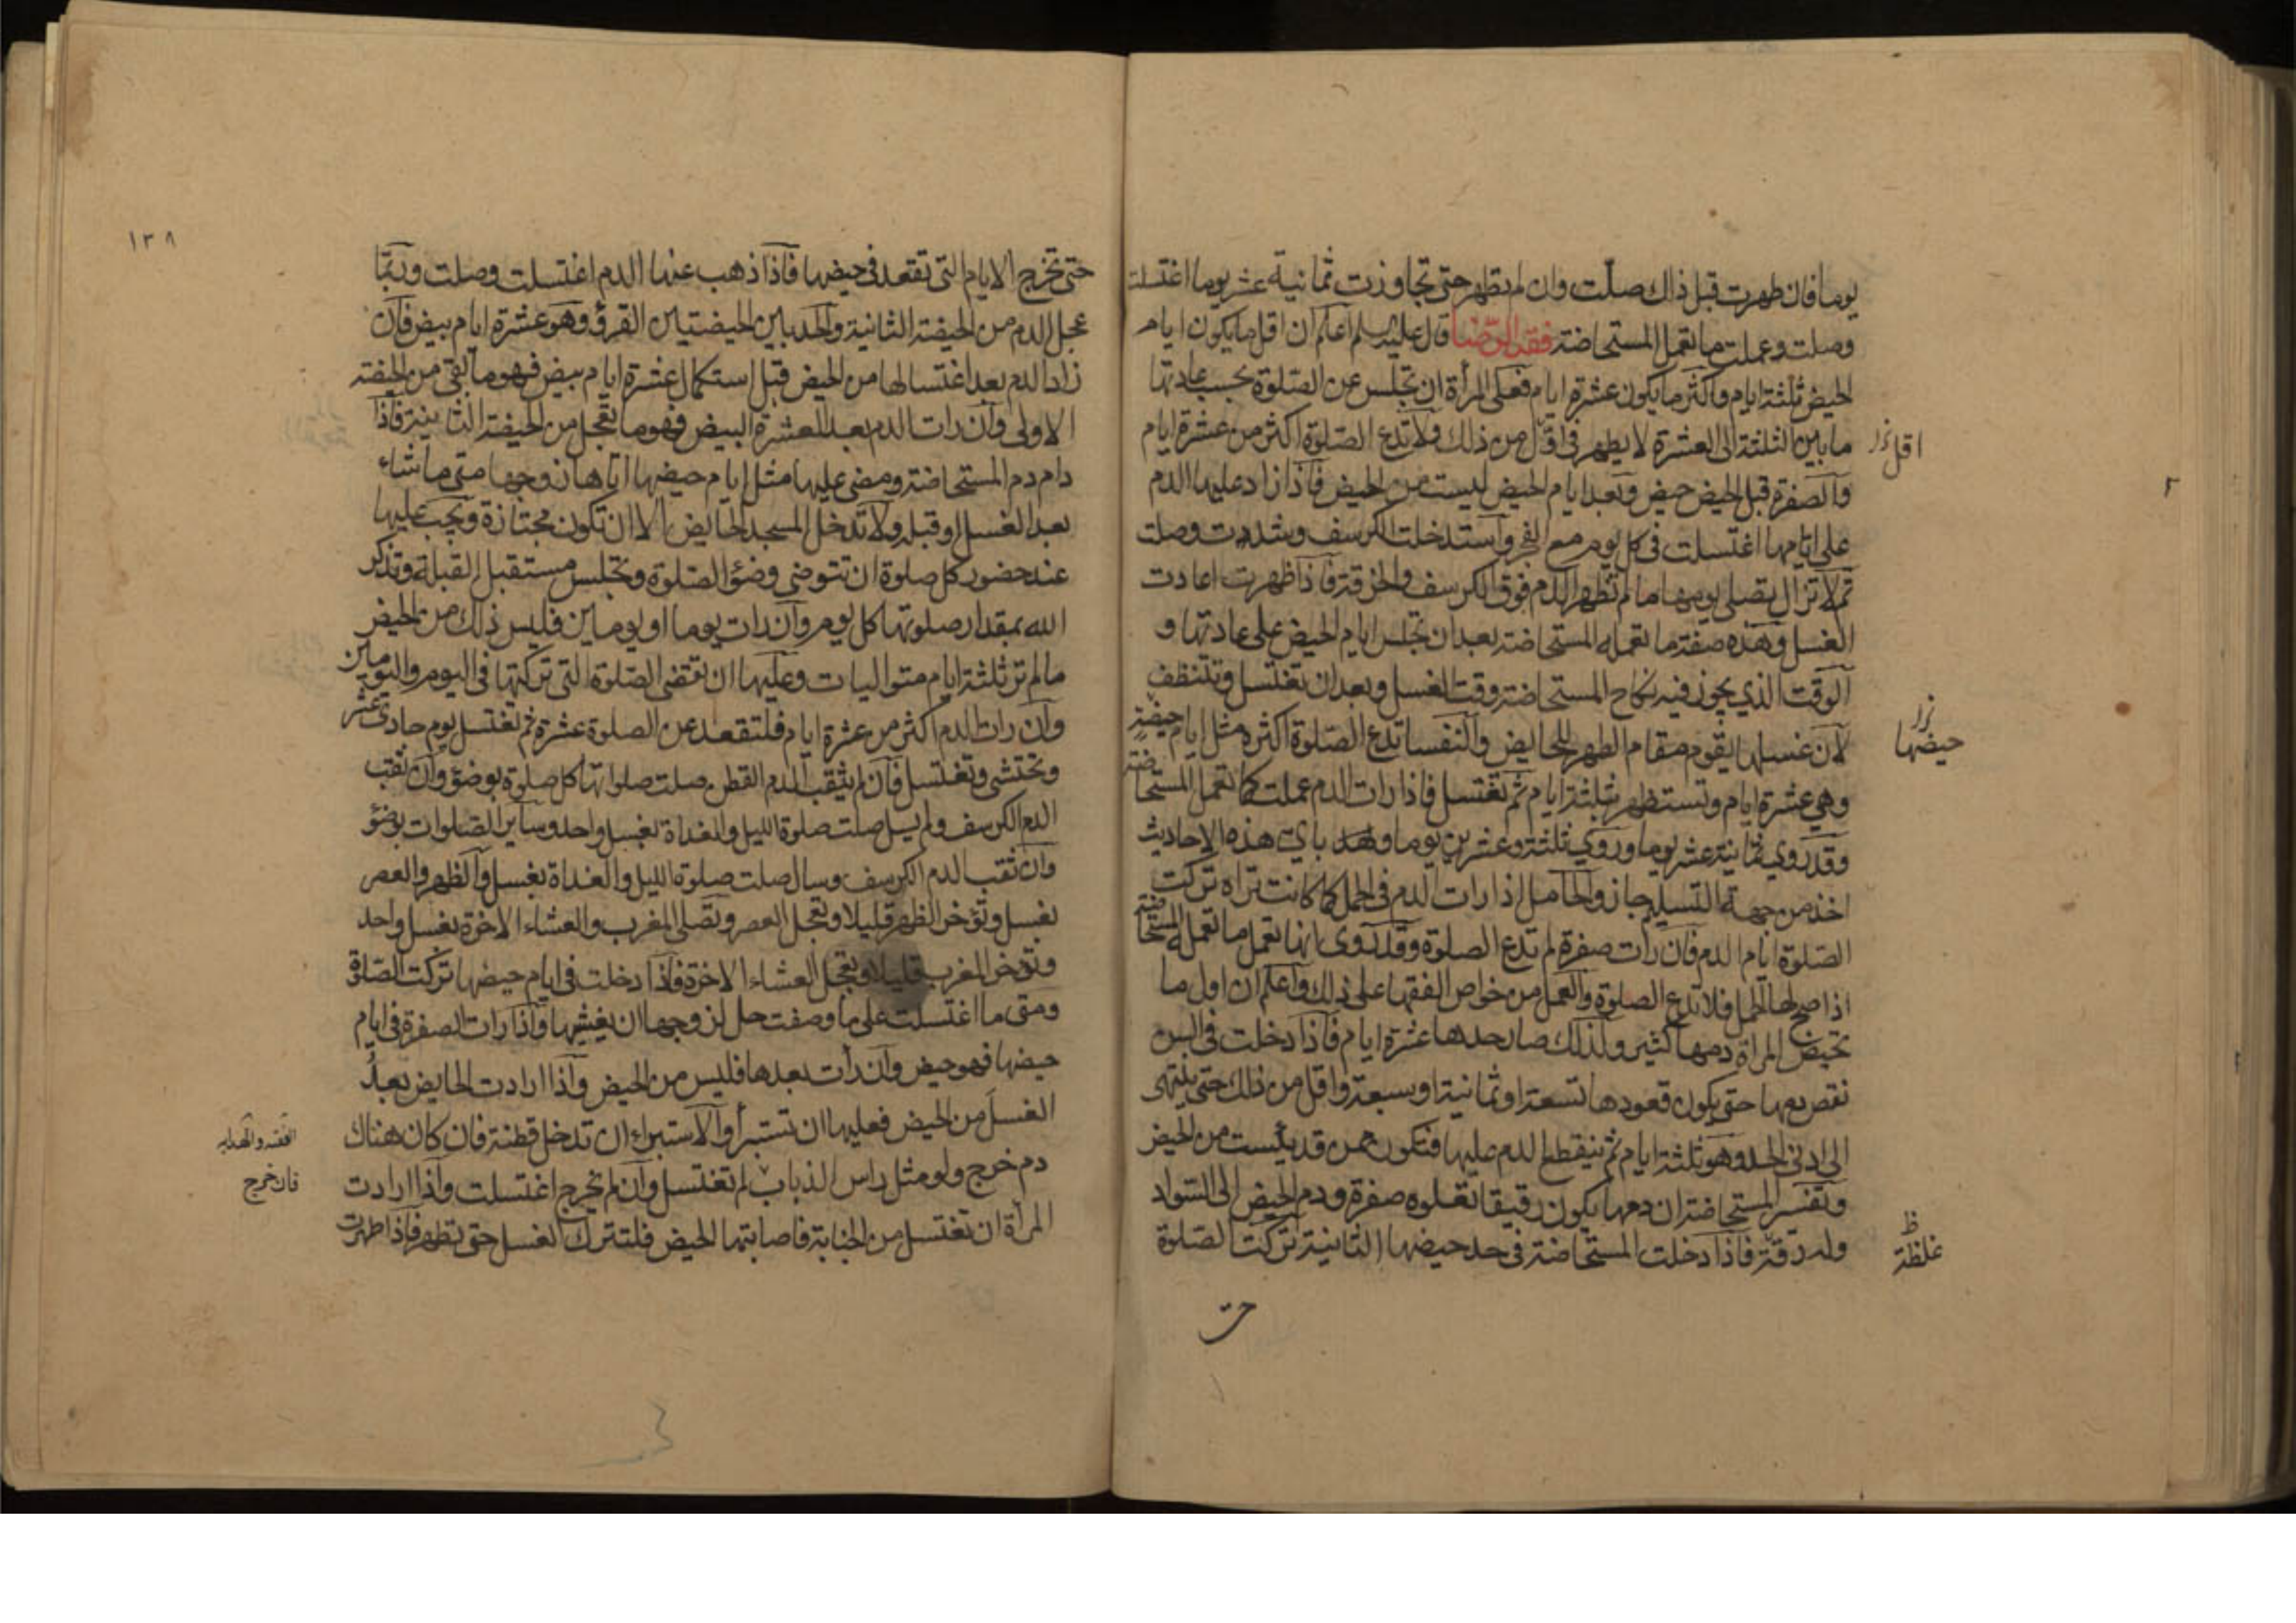 يوما فان طهرت قبل ذلك صلّت وان لم تطهر حتى تجاوزت ثمانية عشر يوما اغتسلت
وصلت وعملت ما تعمل المستحاضة فقه الرضا قال عليه السلم اعلم ان اقل ما يكون ايام
الحيض ثلثة ايام واكثر ما يكون عشرة ايام فعلى المرأة ان تجلس عن الصلوة بحسب عادتها
ما بين الثلثة الى العشرة لا يطهر في اقل من ذلك ولا تدع الصلوة اكثر من عشرة ايام
اقل
والصفرة قبل الحيض حيض وبعد ايام الحيض ليست من الحيض فاذا زاد عليها الدم
على ايامها اغتسلت في كل يوم مع الفجر واستدخلت الكرسف وشددت وصلت
ثم لا تزال يصلى يومها ما لم تظهر الدم فوق الكرسف والخرقة فاذا ظهرت اعادت
الغسل وهذه صفة ما تعمله المستحاضة بعد ان تجلس ايام الحيض على عادتها و
الوقت الذي يجوز فيه نكاح المستحاضة وقت الغسل وبعد ان تغتسل وتتنظف
لان غسلها يقوم مقام الطهر للحايض والنفسا تدع الصلوة اكثره مثل ايام حيضة
حيضها
وهي عشرة ايام وتستظهر بثلثة ايام ثم تغتسل فاذا رات الدم عملت كما تعمل المستحاضة
وقد روي ثمانية عشر يوما وروي ثلثة وعشرين يوما باي هذه الاحاديث
اخذ من جهة التسليم جاز والحامل اذا رات الدم في الحمل كما كانت تراه تركت
الصلوة ايام الدم فان رات صفرة لم تدع الصلوة وقد روى انها تعمل ما تعمله المستحاضة
اذا صح لها الحمل فلا تدع الصلوة والعمل من خواص الفقها على ذلك واعلم ان اول ما
تحيض المراة دمها كثير ولذلك صار حدها عشرة ايام فاذا دخلت في السن
نقص دمها حتى يكون قعودها تسعة او ثمانية او سبعة واقل من ذلك حتى ينتهى
الى ادنى الحد وهو ثلثة ايام ثم ينقطع الدم عليها فتكون ممن قد يئست من الحيض
وتفسير المستحاضة ان دمها يكون رقيقا تعلوه صفرة ودم الحيض الى السواد
وله رقة فاذا دخلت المستحاضة في حد حيضها الثانية تركت الصلوة
ظ
غلظة
حتى
١٣٨
حتى تخرج الايام التى تقعد في حيضها فاذا ذهب عنها الدم اغتسلت وصلت وربما
عجل الدم من الحيضة الثانية والحد بين الحيضتين القرؤ وهو عشرة ايام بيض فان
زاد الدم بعد اغتسالها من الحيض قبل استكمال عشرة ايام بيض فهو ما بقى من الحيضة
الاولى وان رات الدم بعد العشرة البيض فهو ما تعجل من الحيضة الثانية فاذا
دام دم المستحاضة ومضى عليها مثل ايام حيضها اتاها زوجها متى ما شاء
بعد الغسل او قبله ولا تدخل المسجد الحايض الا ان تكون مجتازة ويجب عليها
عند حضور كل صلوة ان تتوضى وضؤ الصلوة وتجلس مستقبل القبلة وتذكر
الله بمقدار صلوتها كل يوم وان رات يوما او يومين فليس ذلك من الحيض
ما لم تر ثلثة ايام متواليات وعليها ان تقضى الصلوة التى تركتها فى اليوم واليومين
وان رات الدم اكثر من عشرة ايام فلتقعد عن الصلوة عشرة ثم تغتسل يوم حادي عشر
وتحتشى وتغتسل فان لم يثقب الدم القطن صلت صلواتها كل صلوة بوضؤ وان ثقب
الدم الكرسف ولم يسل صلت صلوة الليل والغداة بغسل واحد وساير الصلوات بوضؤ
وان ثقب الدم الكرسف وسال صلت صلوة الليل والغداة بغسل والظهر والعصر
بغسل وتؤخر الظهر قليلا وتعجل العصر وتصلى المغرب والعشاء الاخرة بغسل واحد
وتؤخر المغرب قليلا وتعجل العشاء الاخرة فاذا دخلت فى ايام حيضها تركت الصلوة
ومتى ما اغتسلت على ما وصفت حل لزوجها ان يغشيها واذا رات الصفرة فى ايام
حيضها فهو حيض وان رأت بعدها فليس من الحيض واذا ارادت الحايض بعد
الغسل من الحيض فعليها ان تستبرأ والاستبراء ان تدخل قطنة فان كان هناك
الفقه والهدايه
دم خرج ولو مثل راس الذباب لم تغتسل وان لم تخرج اغتسلت واذا ارادت
فان خرج
المرأة ان تغتسل من الجنابة فاصابتها الحيض فلتترك الغسل حتى تطهر فاذا طهرت